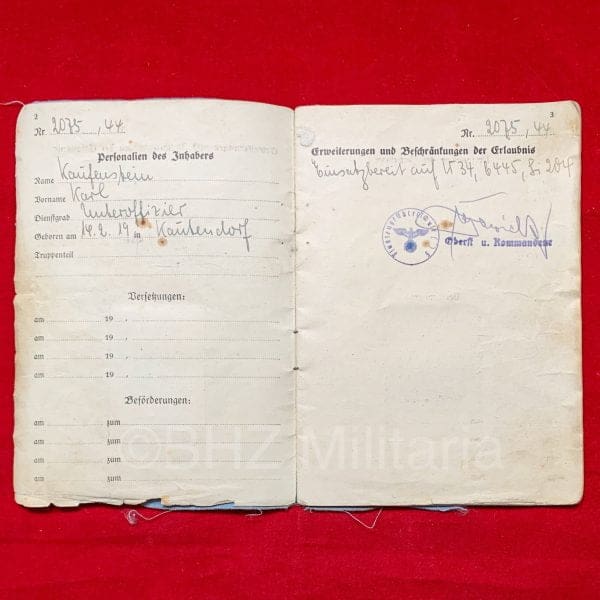 2
Nr. 2075, 44
Personalien des Inhabers
Name Kaufenstein
Vorname Karl
Dienstgrad Unteroffizier
Geboren am 14.2.19 in Kautendorf
Truppenteil
Versetzungen:
am 19 ,
am 19 ,
am 19 ,
am 19 ,
Beförderungen:
am zum
am zum
am zum
am zum
3
Nr. 2075, 44
Erweiterungen und Beschränkungen der Erlaubnis
Einsatzbereit auf W34, C445, Si 204
Oberst u. Kommandeur
©BHZ Militaria